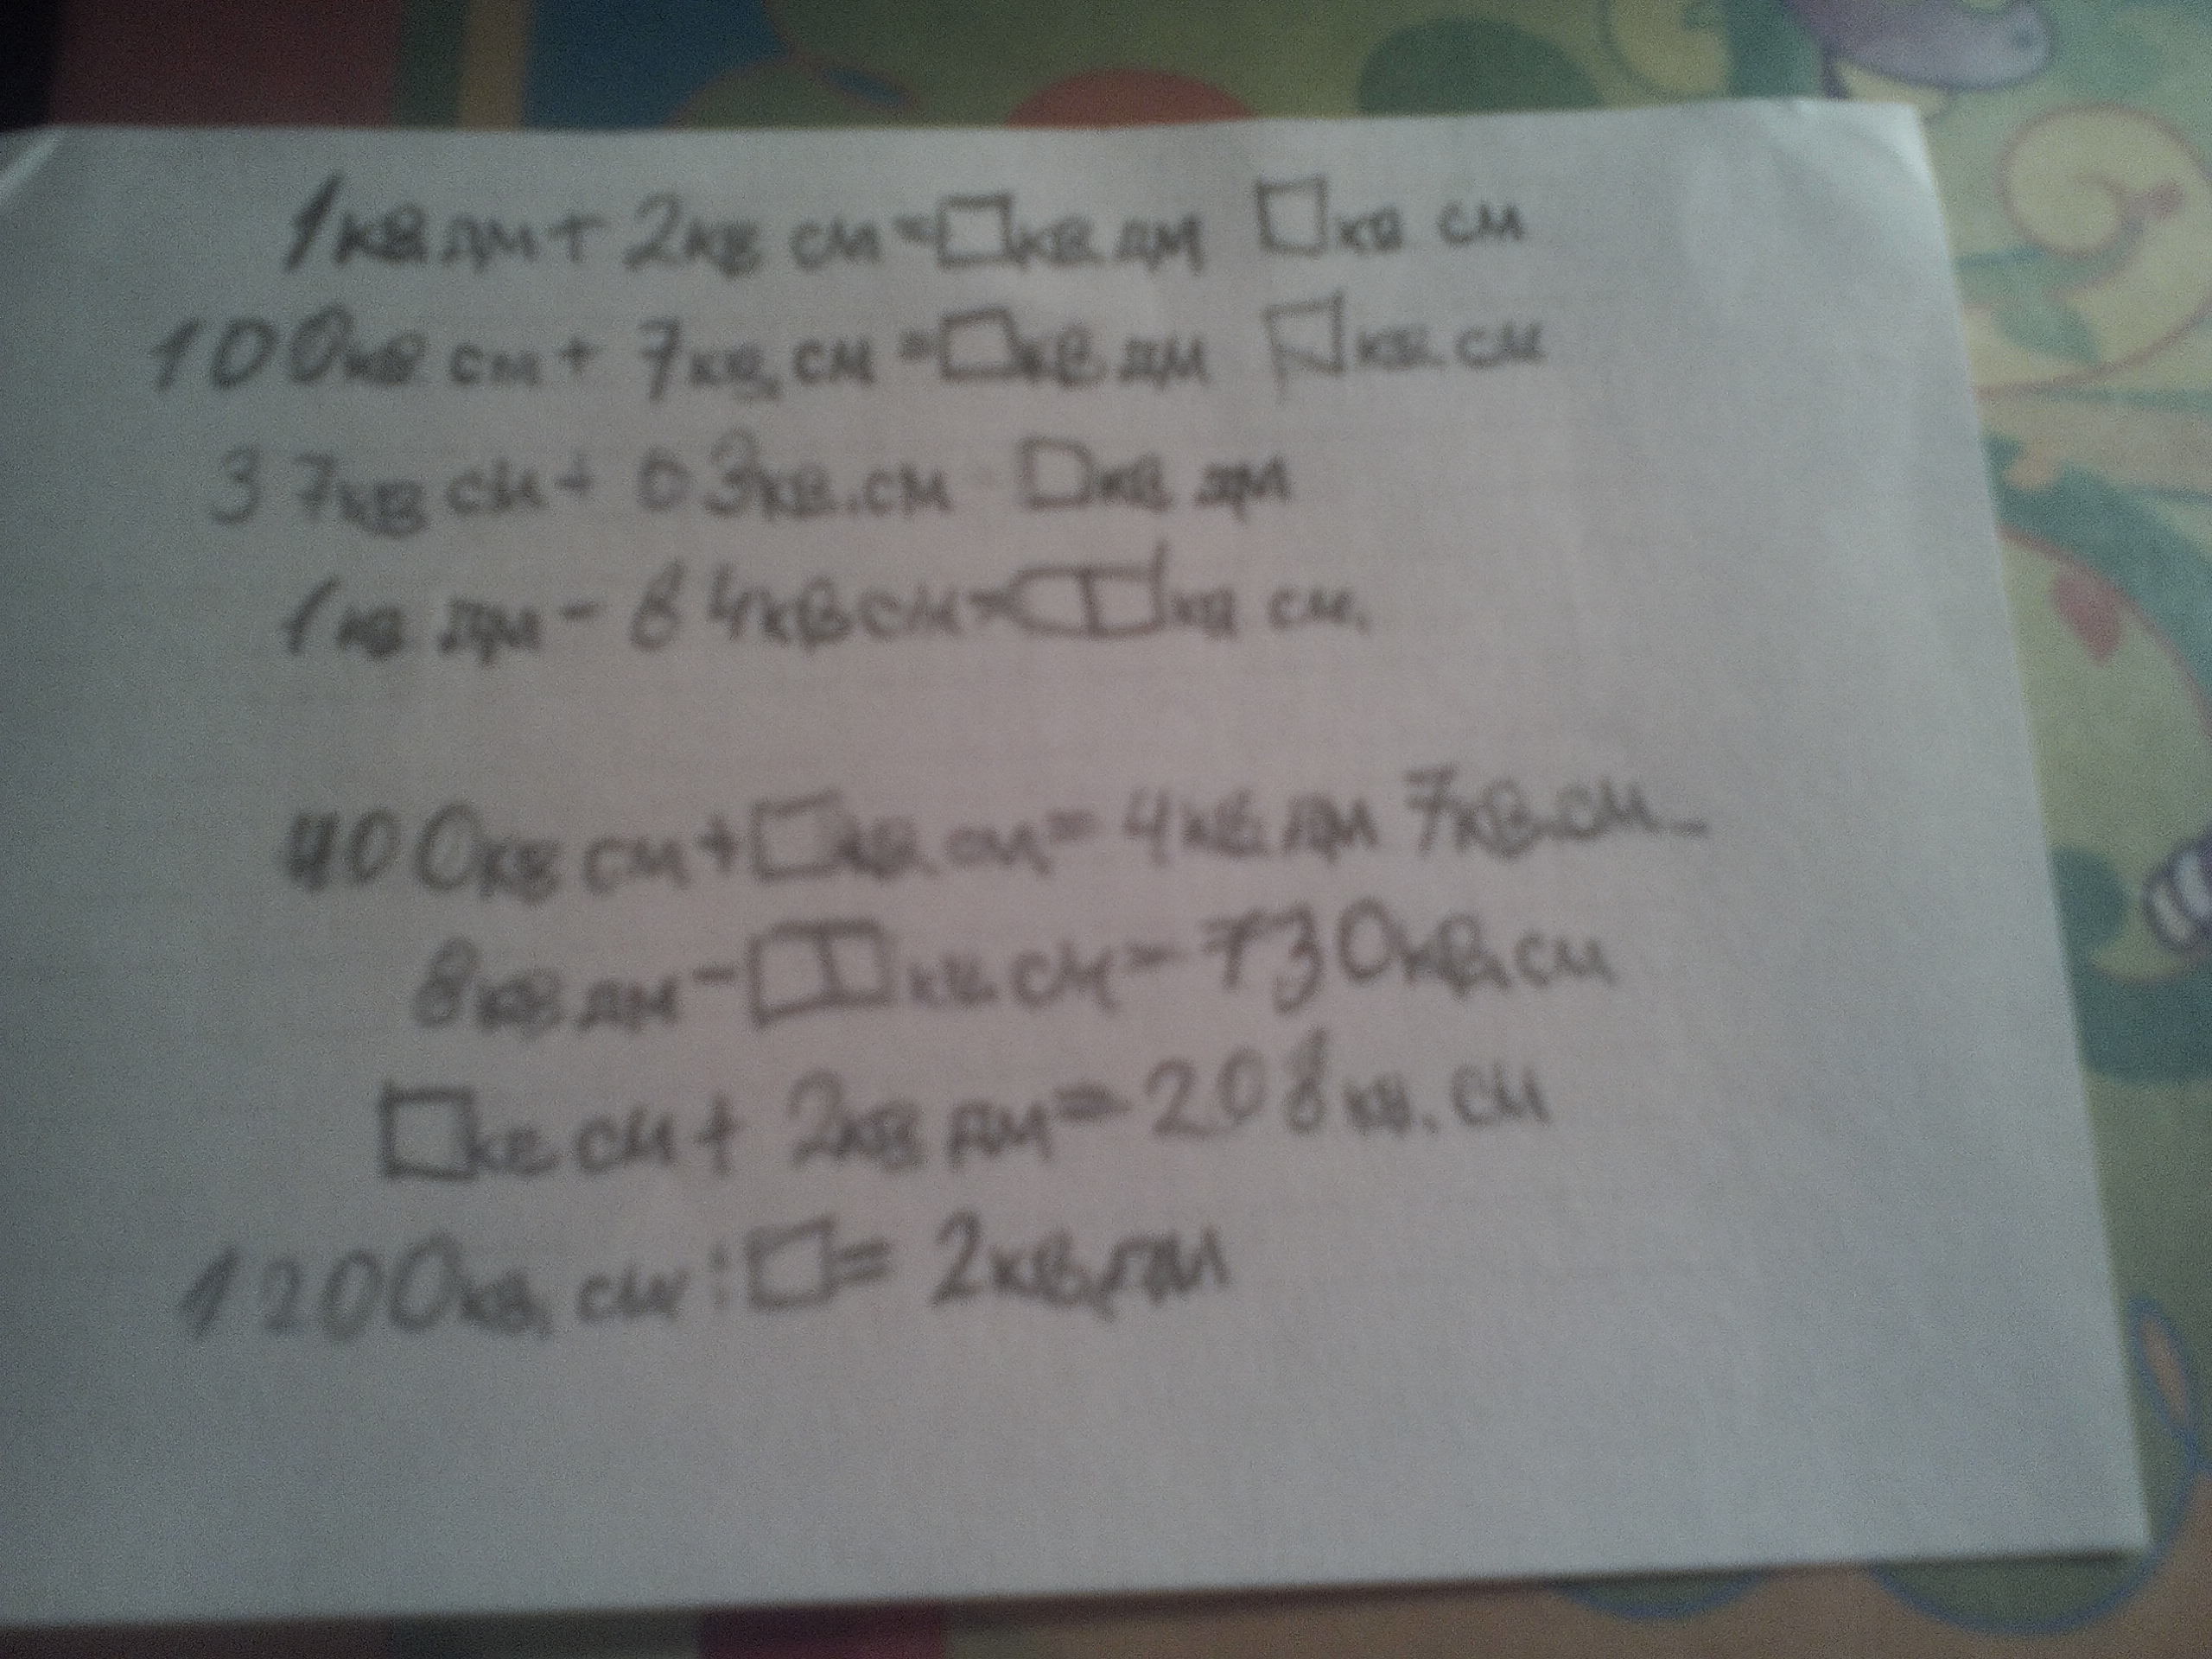 1кв дм + 2кв см = □кв дм □кв см
100кв см + 7кв. см = □кв дм □кв. см
37кв см + 63кв. см □кв дм
1кв дм - 84кв см = □□кв см.
400кв см + □кв. см = 4кв. дм 7кв. см
8кв дм - □□кв. см = 730кв. см
□кв см + 2кв дм = 208кв. см
1200кв. см : □ = 2кв. дм